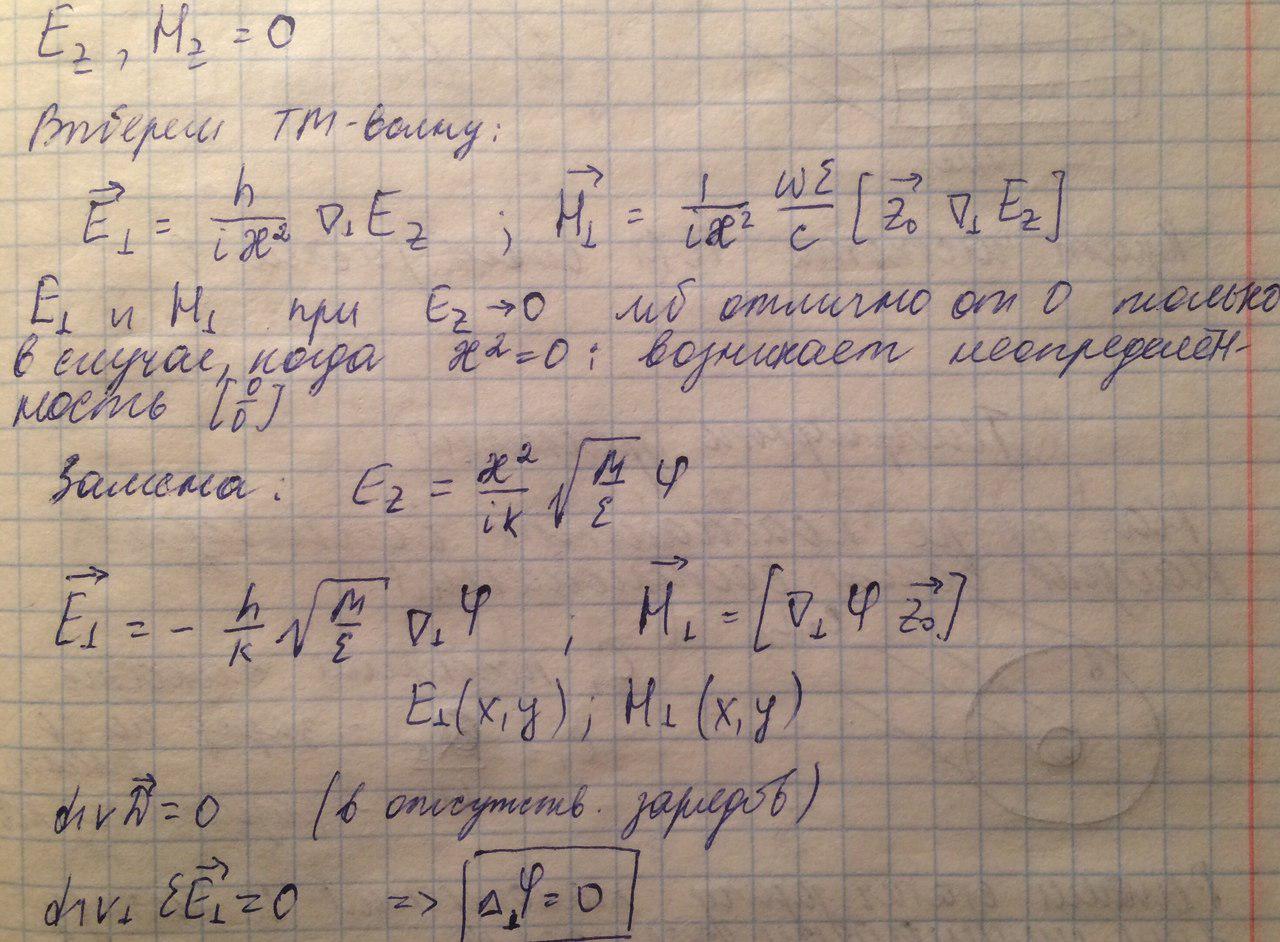 E_z, H_z = 0
Выберем ТМ-волну:
E⃗_⊥ = h/(iæ²) ∇_⊥ E_z ; H⃗_⊥ = 1/(iæ²) ωε/c [z⃗₀ ∇_⊥ E_z]
E_⊥ и H_⊥ при E_z → 0 мб отлично от 0 только
в случае, когда æ² = 0 : возникает неопределён-
ность [0/0]
Замена: E_z = æ²/(iк) √(μ/ε) φ
E⃗_⊥ = - h/к √(μ/ε) ∇_⊥ φ ; H⃗_⊥ = [∇_⊥ φ z⃗₀]
E_⊥(x,y) ; H_⊥(x,y)
div D⃗ = 0 (в отсутств. зарядов)
div_⊥ εE⃗_⊥ = 0 => Δ_⊥φ = 0